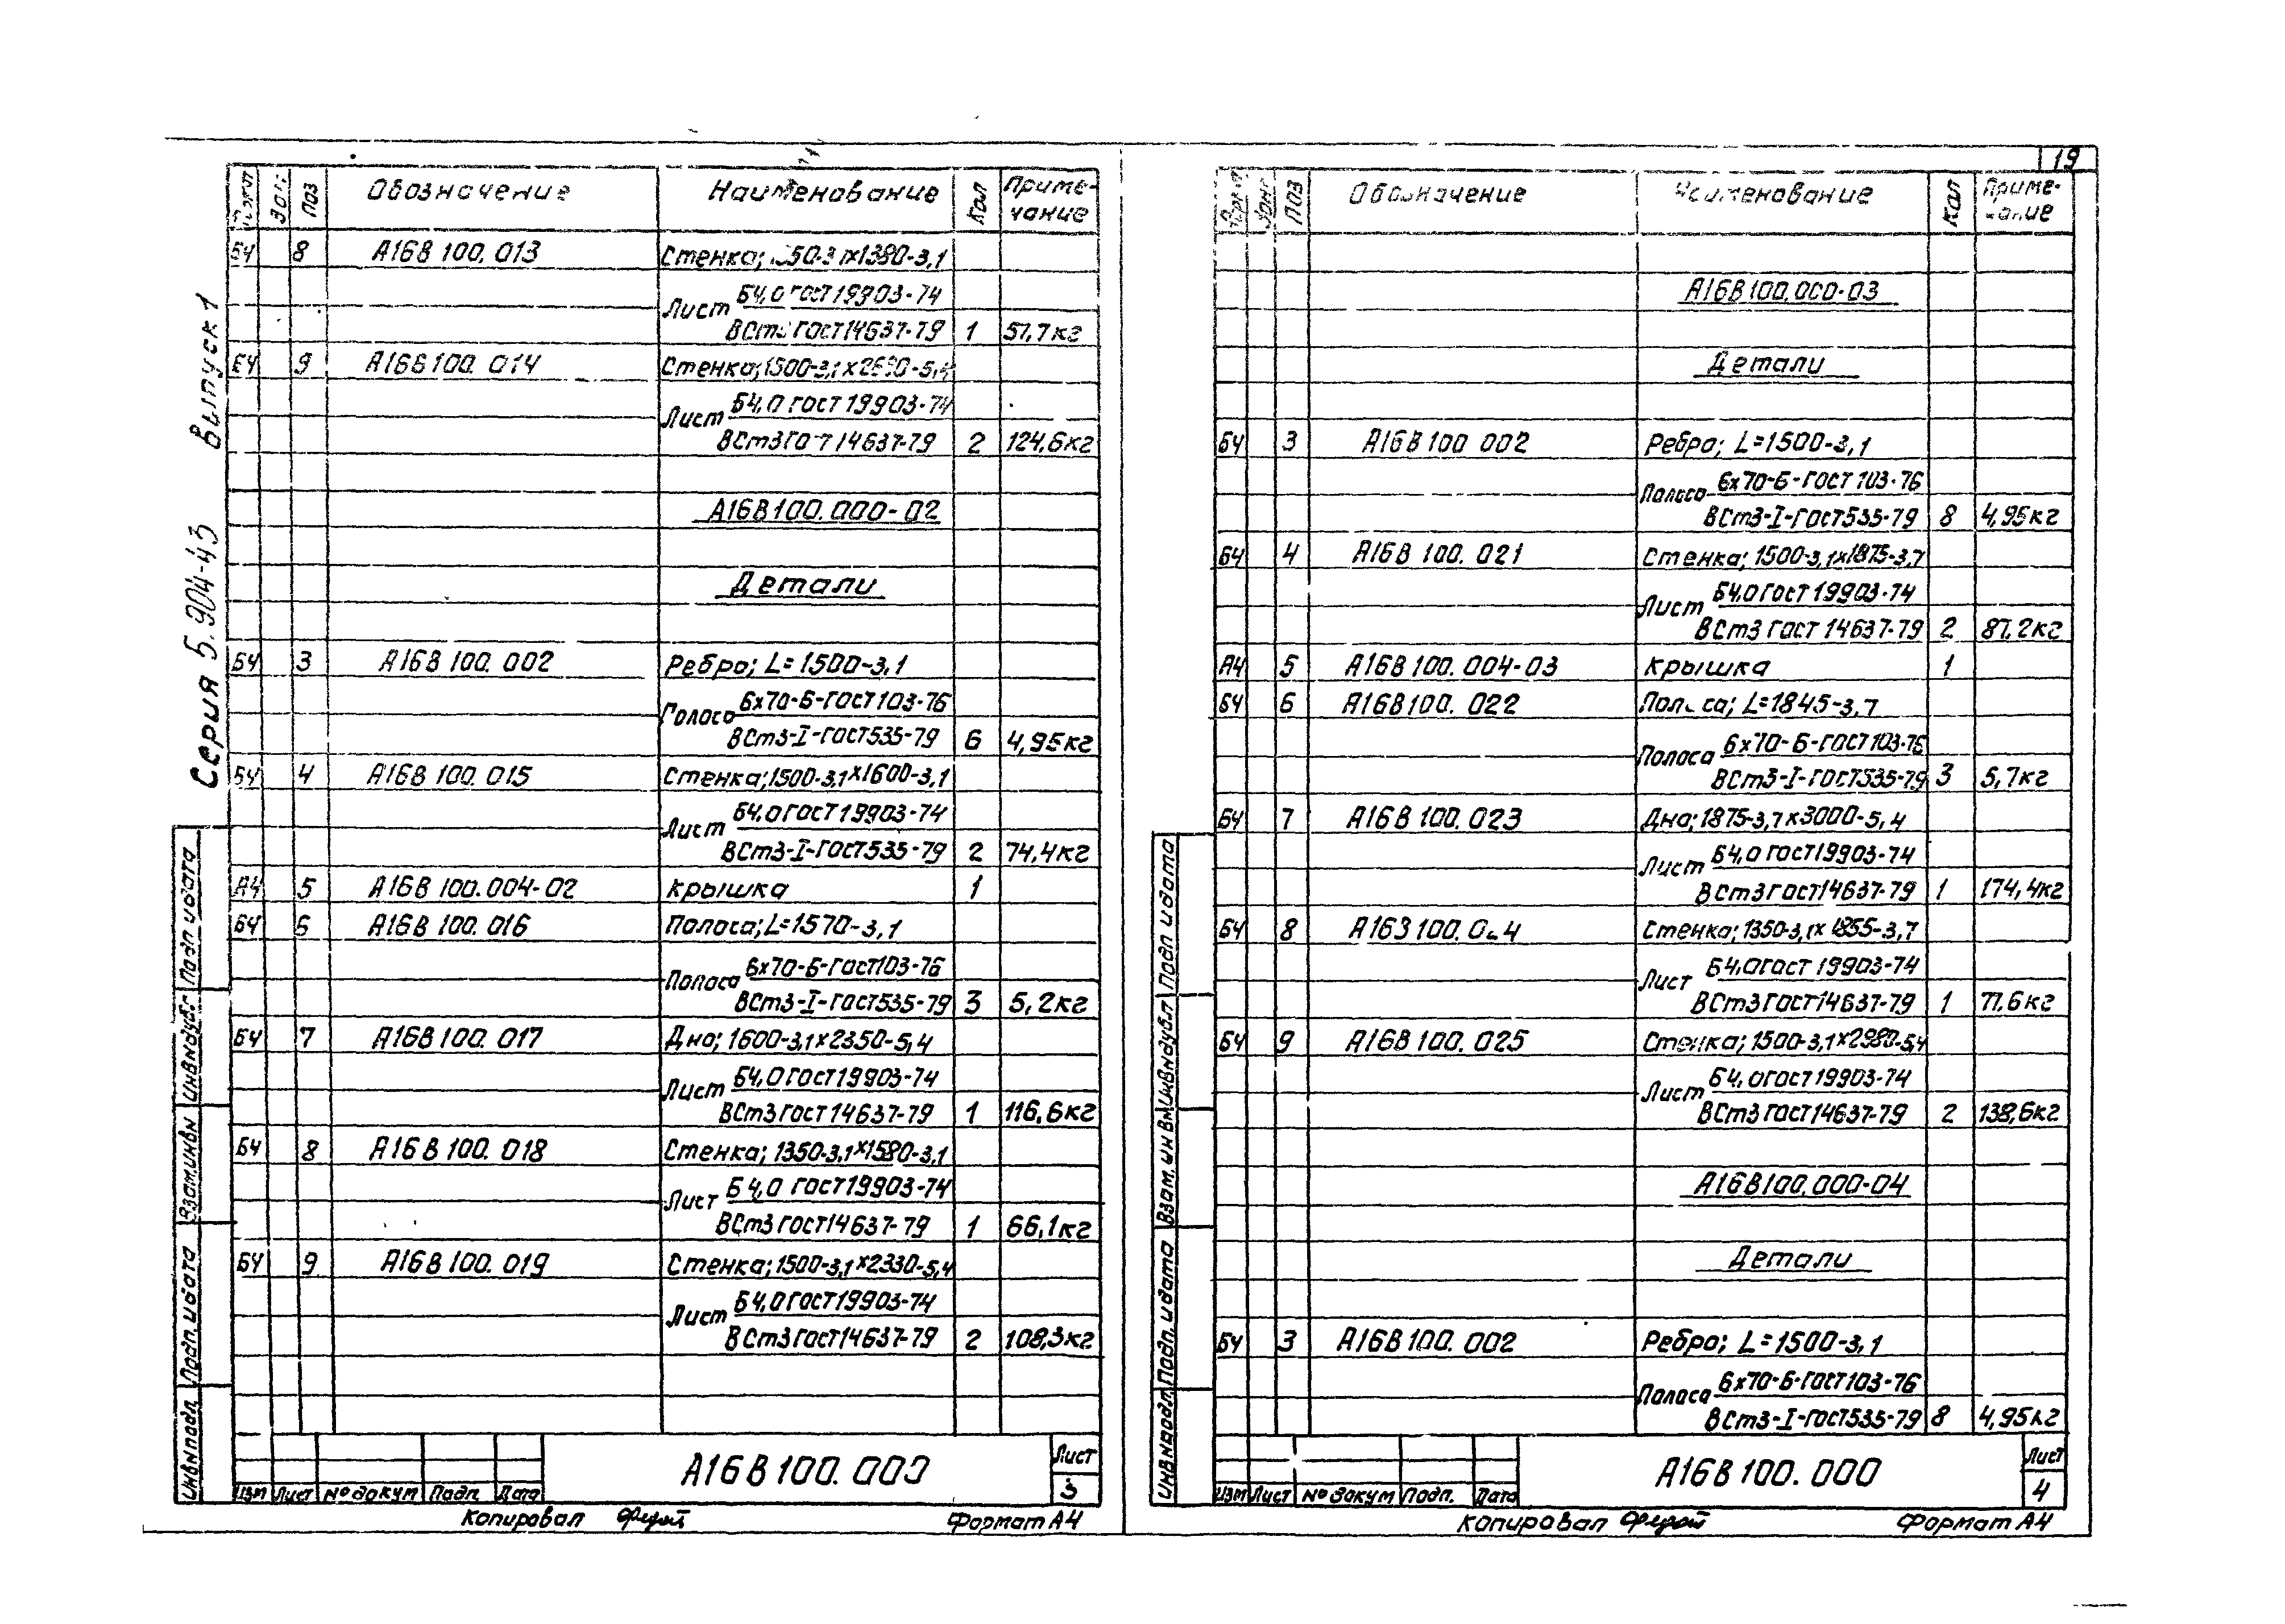 19
Серия 5.904-43 Выпуск 1
Поз Обозначение Наименование Кол Приме-
чание
БЧ 8 А16В 100.013 Стенка;
Лист Б4,0 ГОСТ 19903-74
ГОСТ 14637-79 1 57,7кг
БЧ 9 А16В 100.014 Стенка; 1500-3,1
Лист Б4,0 ГОСТ 19903-74
ВСт3 14637-79 2 124,6кг
А16В100.000-02
Детали
БЧ 3 А16В 100.002 Ребро; L=1500-3,1
Полоса 6х70-Б-ГОСТ103-76
ВСт3-I-ГОСТ535-79 6 4,95кг
БЧ 4 А16В 100.015 Стенка; 1500-3,1х1600-3,1
Лист Б4,0 ГОСТ 19903-74
ВСт3-I-ГОСТ535-79 2 74,4кг
А4 5 А16В 100.004-02 Крышка 1
БЧ 6 А16В 100.016 Полоса; L=1570-3,1
Полоса 6х70-Б-ГОСТ103-76
ВСт3-I-ГОСТ535-79 3 5,2кг
БЧ 7 А16В 100.017 Дно; 1600-3,1х2350-5,4
Лист Б4,0 ГОСТ19903-74
ВСт3 ГОСТ 14637-79 1 116,6кг
БЧ 8 А16В 100.018 Стенка; 1350-3,1х1580-3,1
Лист Б4,0 ГОСТ19903-74
ВСт3 ГОСТ14637-79 1 66,1кг
БЧ 9 А16В 100.019 Стенка; 1500-3,1х2330-5,4
Лист Б4,0 ГОСТ19903-74
ВСт3 ГОСТ14637-79 2 108,3кг
Инв.№подл. Подп. и дата Взам.инв.№ Инв.№дубл. Подп. и дата
А16В100.000 Лист
3
Изм Лист № докум Подп. Дата
Копировал Формат А4
Поз Обозначение Наименование Кол Приме-
чание
А16В100.000-03
Детали
БЧ 3 А16В 100 002 Ребро; L=1500-3,1
Полоса 6х70-Б-ГОСТ 103-76
ВСт3-I-ГОСТ535-79 8 4,95кг
БЧ 4 А16В 100.021 Стенка; 1500-3,1х1875-3,7
Лист Б4,0 ГОСТ 19903-74
ВСт3 ГОСТ 14637-79 2 87,2кг
А4 5 А16В 100.004-03 Крышка 1
БЧ 6 А16В100.022 L=1845-3,7
Полоса 6х70-Б-ГОСТ103-76
ВСт3-I-ГОСТ535-79 3 5,7кг
БЧ 7 А16В 100.023 Дно; 1875-3,7х3000-5,4
Лист Б4,0 ГОСТ19903-74
ВСт3 ГОСТ14637-79 1 174,4кг
БЧ 8 Стенка; 1350-3,1х1855-3,7
Лист Б4,0 ГОСТ 19903-74
ВСт3 ГОСТ14637-79 1 77,6кг
БЧ 9 А16В 100.025 Стенка; 1500-3,1х2980-5,4
Лист Б4,0 ГОСТ19903-74
ВСт3 ГОСТ14637-79 2 138,6кг
А16В100.000-04
Детали
БЧ 3 А16В 100.002 Ребро; L=1500-3,1
Полоса 6х70-Б-ГОСТ103-76
ВСт3-I-ГОСТ535-79 8 4,95кг
Инв.№подл. Подп. и дата Взам.инв.№ Инв.№дубл. Подп. и дата
А16В100.000 Лист
4
Изм Лист № докум Подп. Дата
Копировал Формат А4